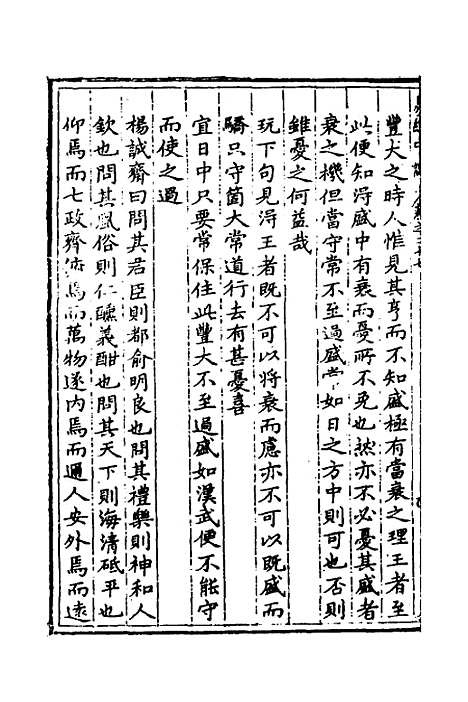 豐大之時人惟見其亨而不知盛極有當衰之理王者至
此便知淂盛中有衰而憂所不免也然亦不必憂其盛者
衰之機但當守常不至過盛常如日之方中則可也否則
雖憂之何益哉
玩下句見淂王者既不可以將衰而慮亦不可以既盛而
驕只守箇大常道行去有甚憂喜
宜日中只要常保住此豐大不至過盛如漢武便不能守
而使之過
楊誠齋曰問其君臣則都俞明良也問其禮樂則神和人
欽也問其風俗則仁醺義酣也問其天下則海清砥平也
仰焉而七政齊俯焉而萬物遂內焉而邇人安外焉而逺